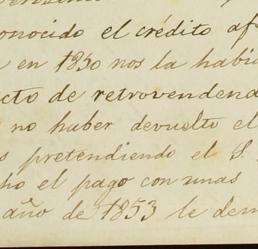 onocido el crédito af
en 1850 nos la habia
cto de retrovendend
no haber devuelto el
s pretendiendo el S.
ho el pago con unas
año de 1853 le dem